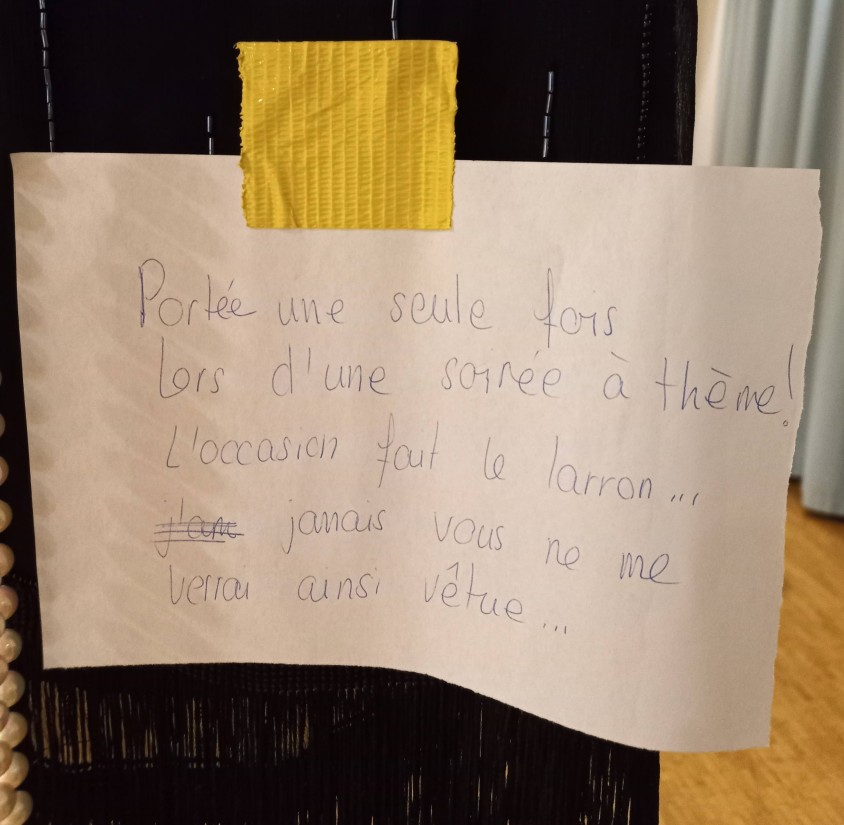 Portée une seule fois
Lors d'une soirée à thème!
L'occasion fait le larron...
jamais vous ne me
verrai ainsi vêtue...